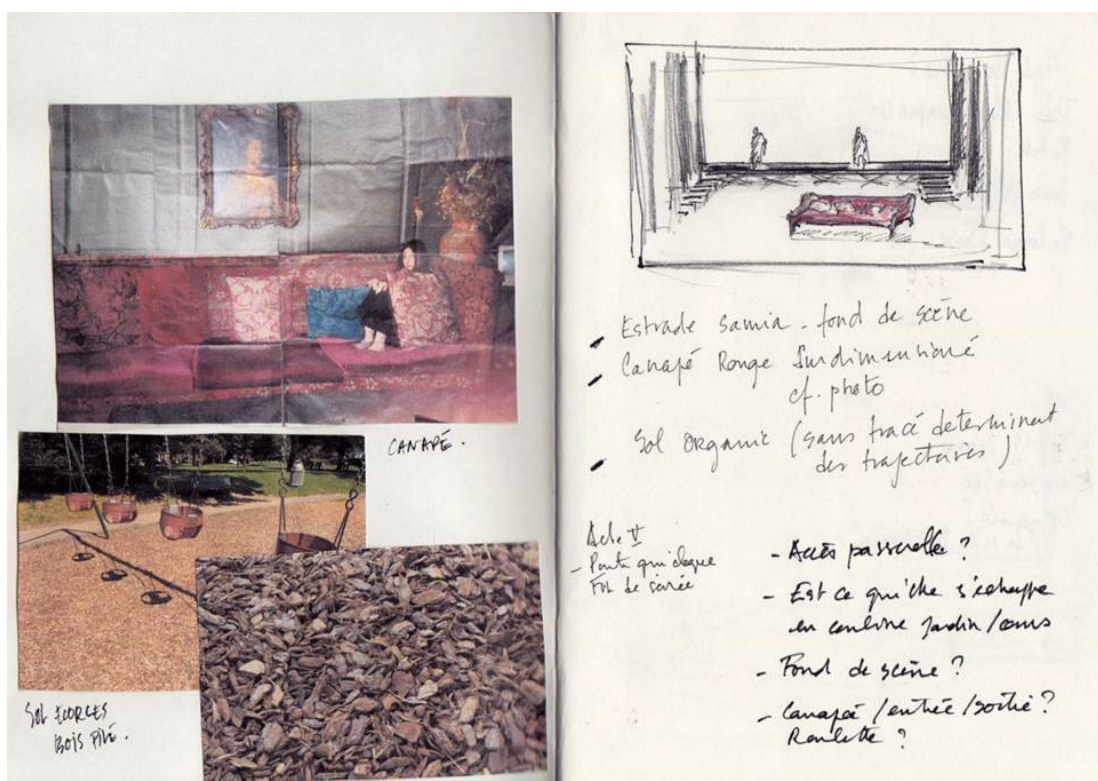 CANAPÉ.
SOL ECORCES
BOIS PILÉ.
Estrade samia - fond de scène
Canapé Rouge Surdimensioné
cf. photo
Sol organic (sans tracé determinant
des trajectoires)
Acte V
- Porte qui claque
Fin de soirée
- Accès passerelle ?
- Est ce qu'elle s'échappe
en coulisse jardin / cours
- Fond de scène ?
- Canapé / entrée / sortie ?
Roulette ?